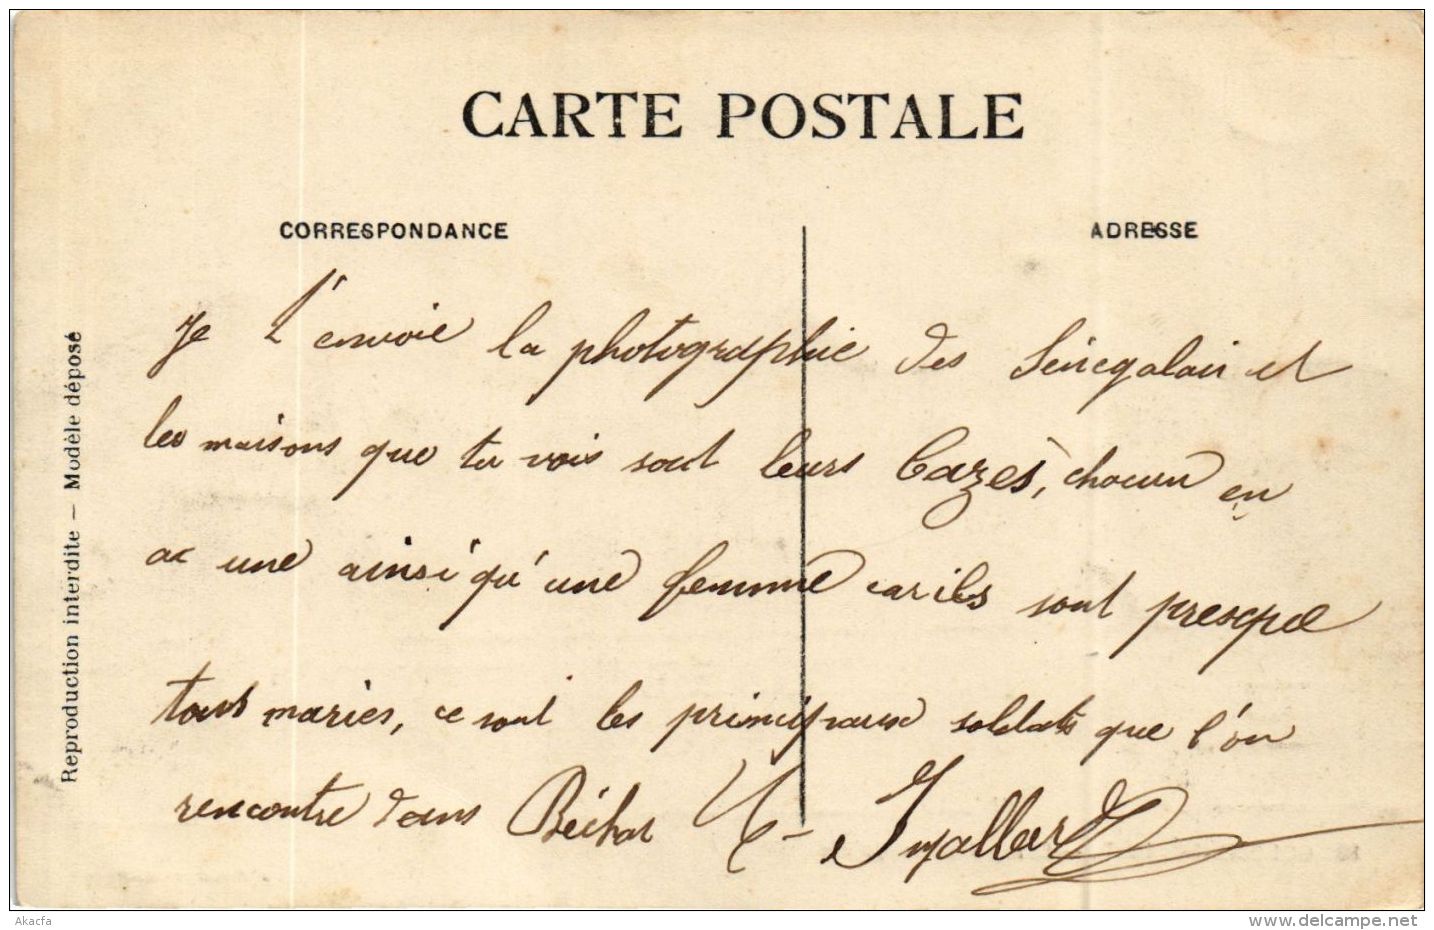 CARTE POSTALE
CORRESPONDANCE
ADRESSE
Je t'envoie la photographie des Sénégalais et
les maisons que tu vois sont leurs Cazès, chacun en
a une ainsi qu'une femme car ils sont presque
tous mariés, ce sont les principaux soldats que l'on
rencontre dans Béchar
Reproduction interdite — Modèle déposé
Akacfa
www.delcampe.net